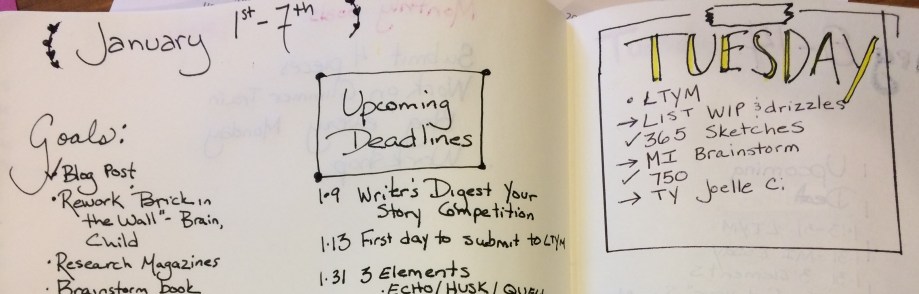 January 1st-7th
Goals:
✓ Blog Post
• Rework "Brick in
the Wall" - Brain,
Child
• Research Magazines
• Brainstorm book
Upcoming
Deadlines
1•9 Writer's Digest Your
Story Competition
1•13 First day to submit to LTYM
1•31 3 Elements
• ECHO/HUSK/
TUESDAY
• LTYM
→ LIST WIP & drizzles
✓ 365 Sketches
→ MI Brainstorm
✓ 750
→ TY Joelle C.